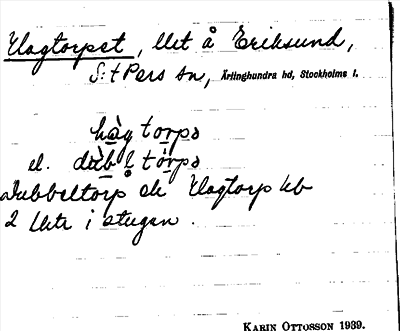 Klagtorpet, lht å Eriksund,
S:t Pers sn, Ärlinghundra hd, Stockholms l.
hàg torps
el. dùbḷ tòrps
Dubbeltorp el. Klagtorp kb
2 lht i stugan.
KARIN OTTOSSON 1939.